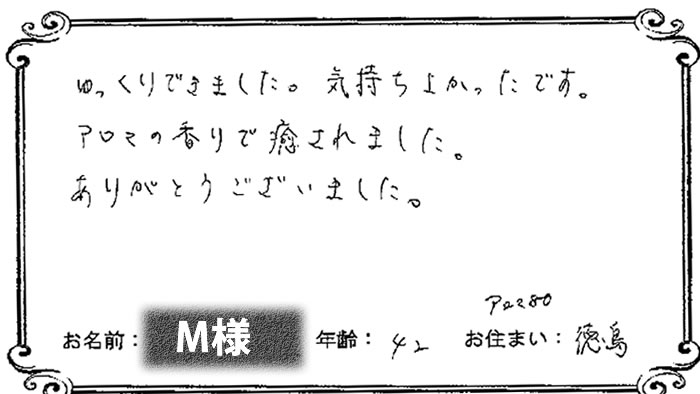 ゆっくりできました。気持ちよかったです。
アロマの香りで癒されました。
ありがとうございました。
アロマ80
お名前： M様 年齢： 42 お住まい： 徳島